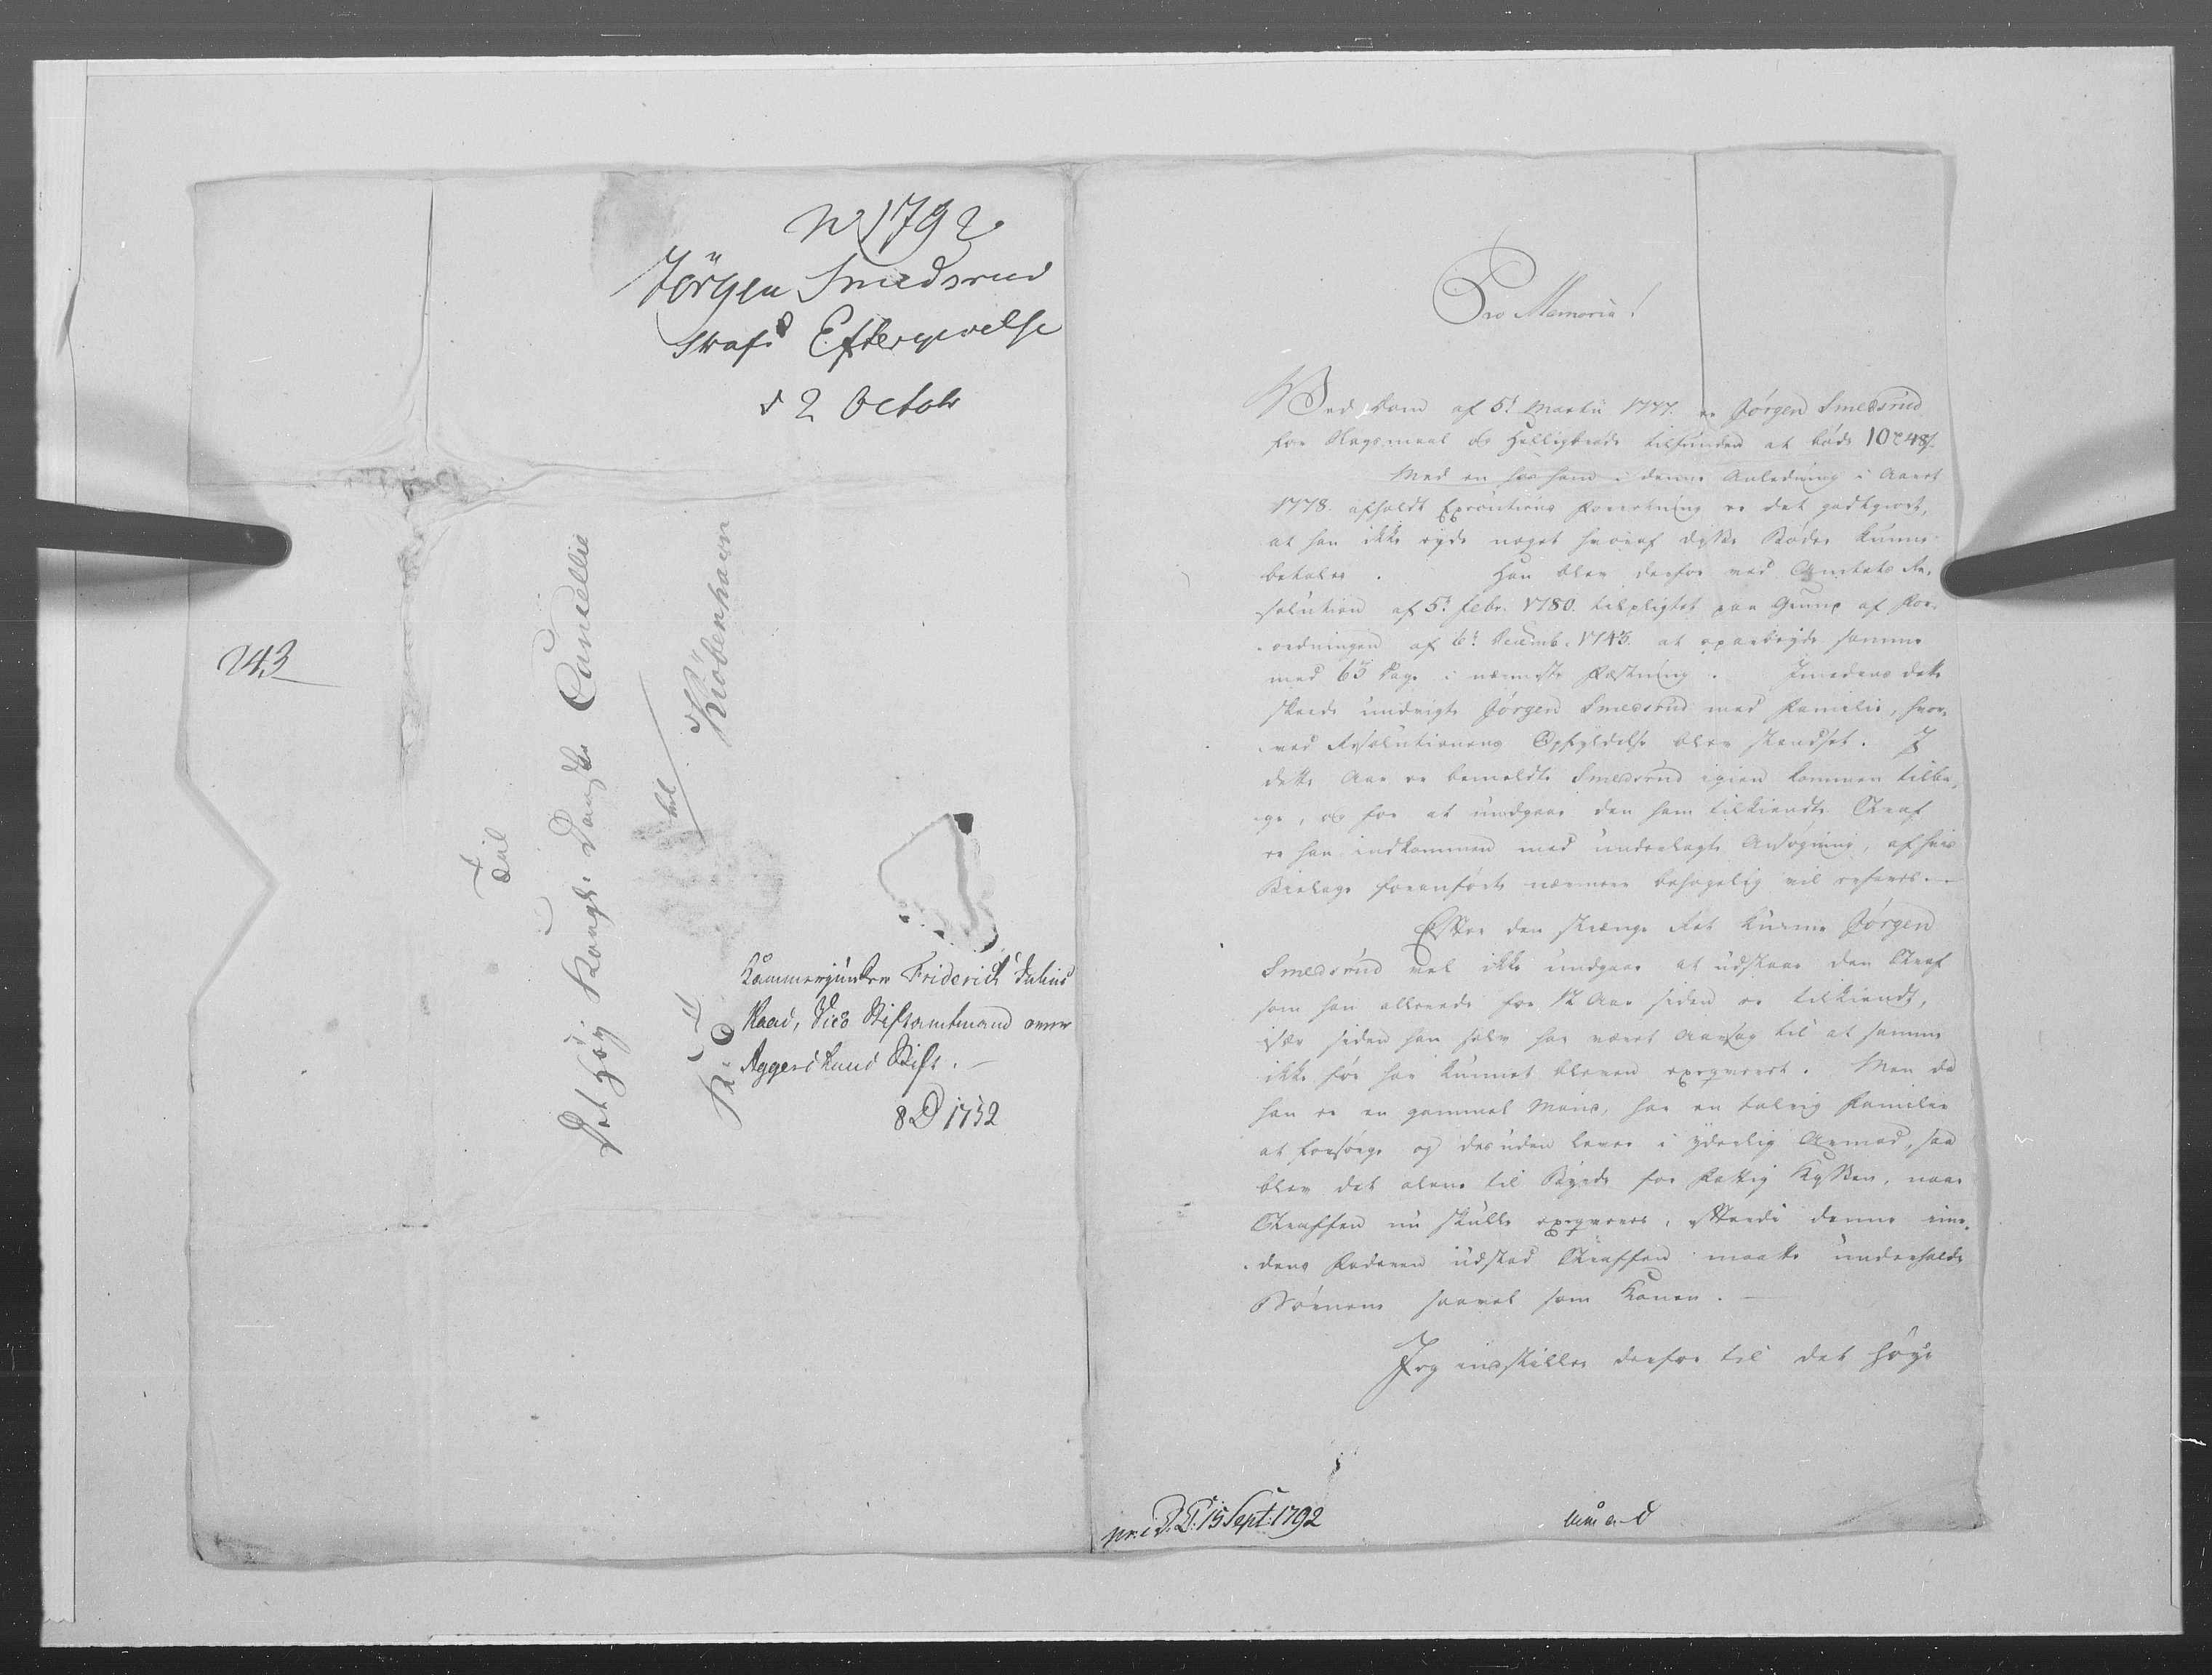 No 1792
Jörgen Smedsrud
Strafs Eftergivelse
d 2 Octob
243
Til
Det Høy Kongl. Danske Cancellie
til Kiøbenhavn
K: T
Kammerjunker Friderich Julius
Kaas, Vice Stiftamtmand over
Aggershuus Stift. -
8 D 1752
Pro Memoria!
Ved Dom af 5t Martii 1777. er Jørgen Smedsrud
for Slagsmaal og Helligbrøde tilfunden at bøde 10 48 s.
Med en hos ham i denne Anledning i Aaret
1778. afholdt Executions Forretning er det godtgiort,
at han ikke eyede noget hvoraf disse Bøder kunne
betales. Han blev derfor ved Amtets Re,
solution af 5t Febr. 1780. tilpligtet paa Grund af For,
ordningen af 6t Decemb. 1743. at exarbeyde samme
med 63 Dage i nærmeste Fæstning. Imedens dette
skeede undvigte Jørgen Smedsrud med Familie, hvor,
ved Resolutionens Opfyldelse blev standset. I
dette Aar er bemeldte Smedsrud igien kommen tilba,
ge, og for at undgaae den ham tilkiendte Straf
er han indkommen med underlagte Ansøgning, af hvis
Bielage foranførte nærmere behagelig vil erfares. -
Efter den strænge Ret kunne Jørgen
Smedsrud vel ikke undgaae at udstaae den Straf
som han allerede for 12 Aar siden er tilkiendt,
især siden han selv har været Aarsag til at samme
ikke før har kunnet bleven exeqveret. Men da
han er en gammel Mand, har en talrig Familie
at forsørge og desuden lever i yderlig Armod, saa
blev det alene til Byrde for Fattig Kassen, naar
Straffen nu skulle exeqveres, efterdi denne ime,
dens Faderen udstod Straffen maatte underholde
Børnene saavel som Konen. -
Jeg indstiller derfor til det høye
pr. i D. C. 15 Sept: 1792